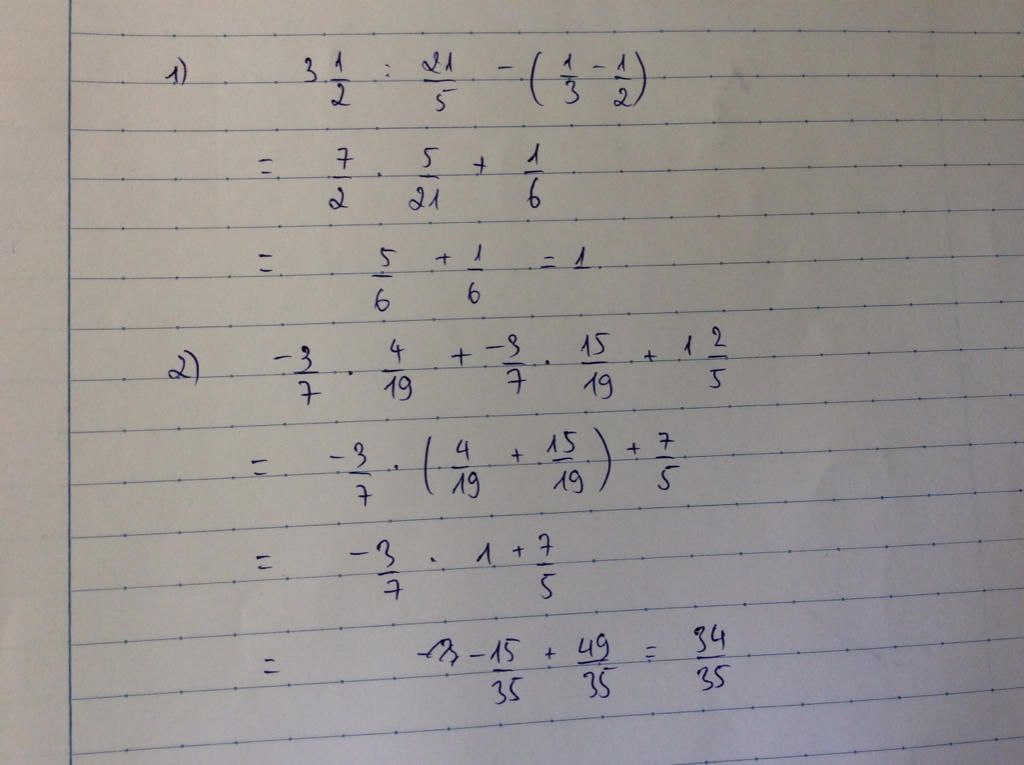 1) 3 1/2 : 21/5 - (1/3 - 1/2)
= 7/2 . 5/21 + 1/6
= 5/6 + 1/6 = 1
2) -3/7 . 4/19 + -3/7 . 15/19 + 1 2/5
= -3/7 . (4/19 + 15/19) + 7/5
= -3/7 . 1 + 7/5
= -15/35 + 49/35 = 34/35